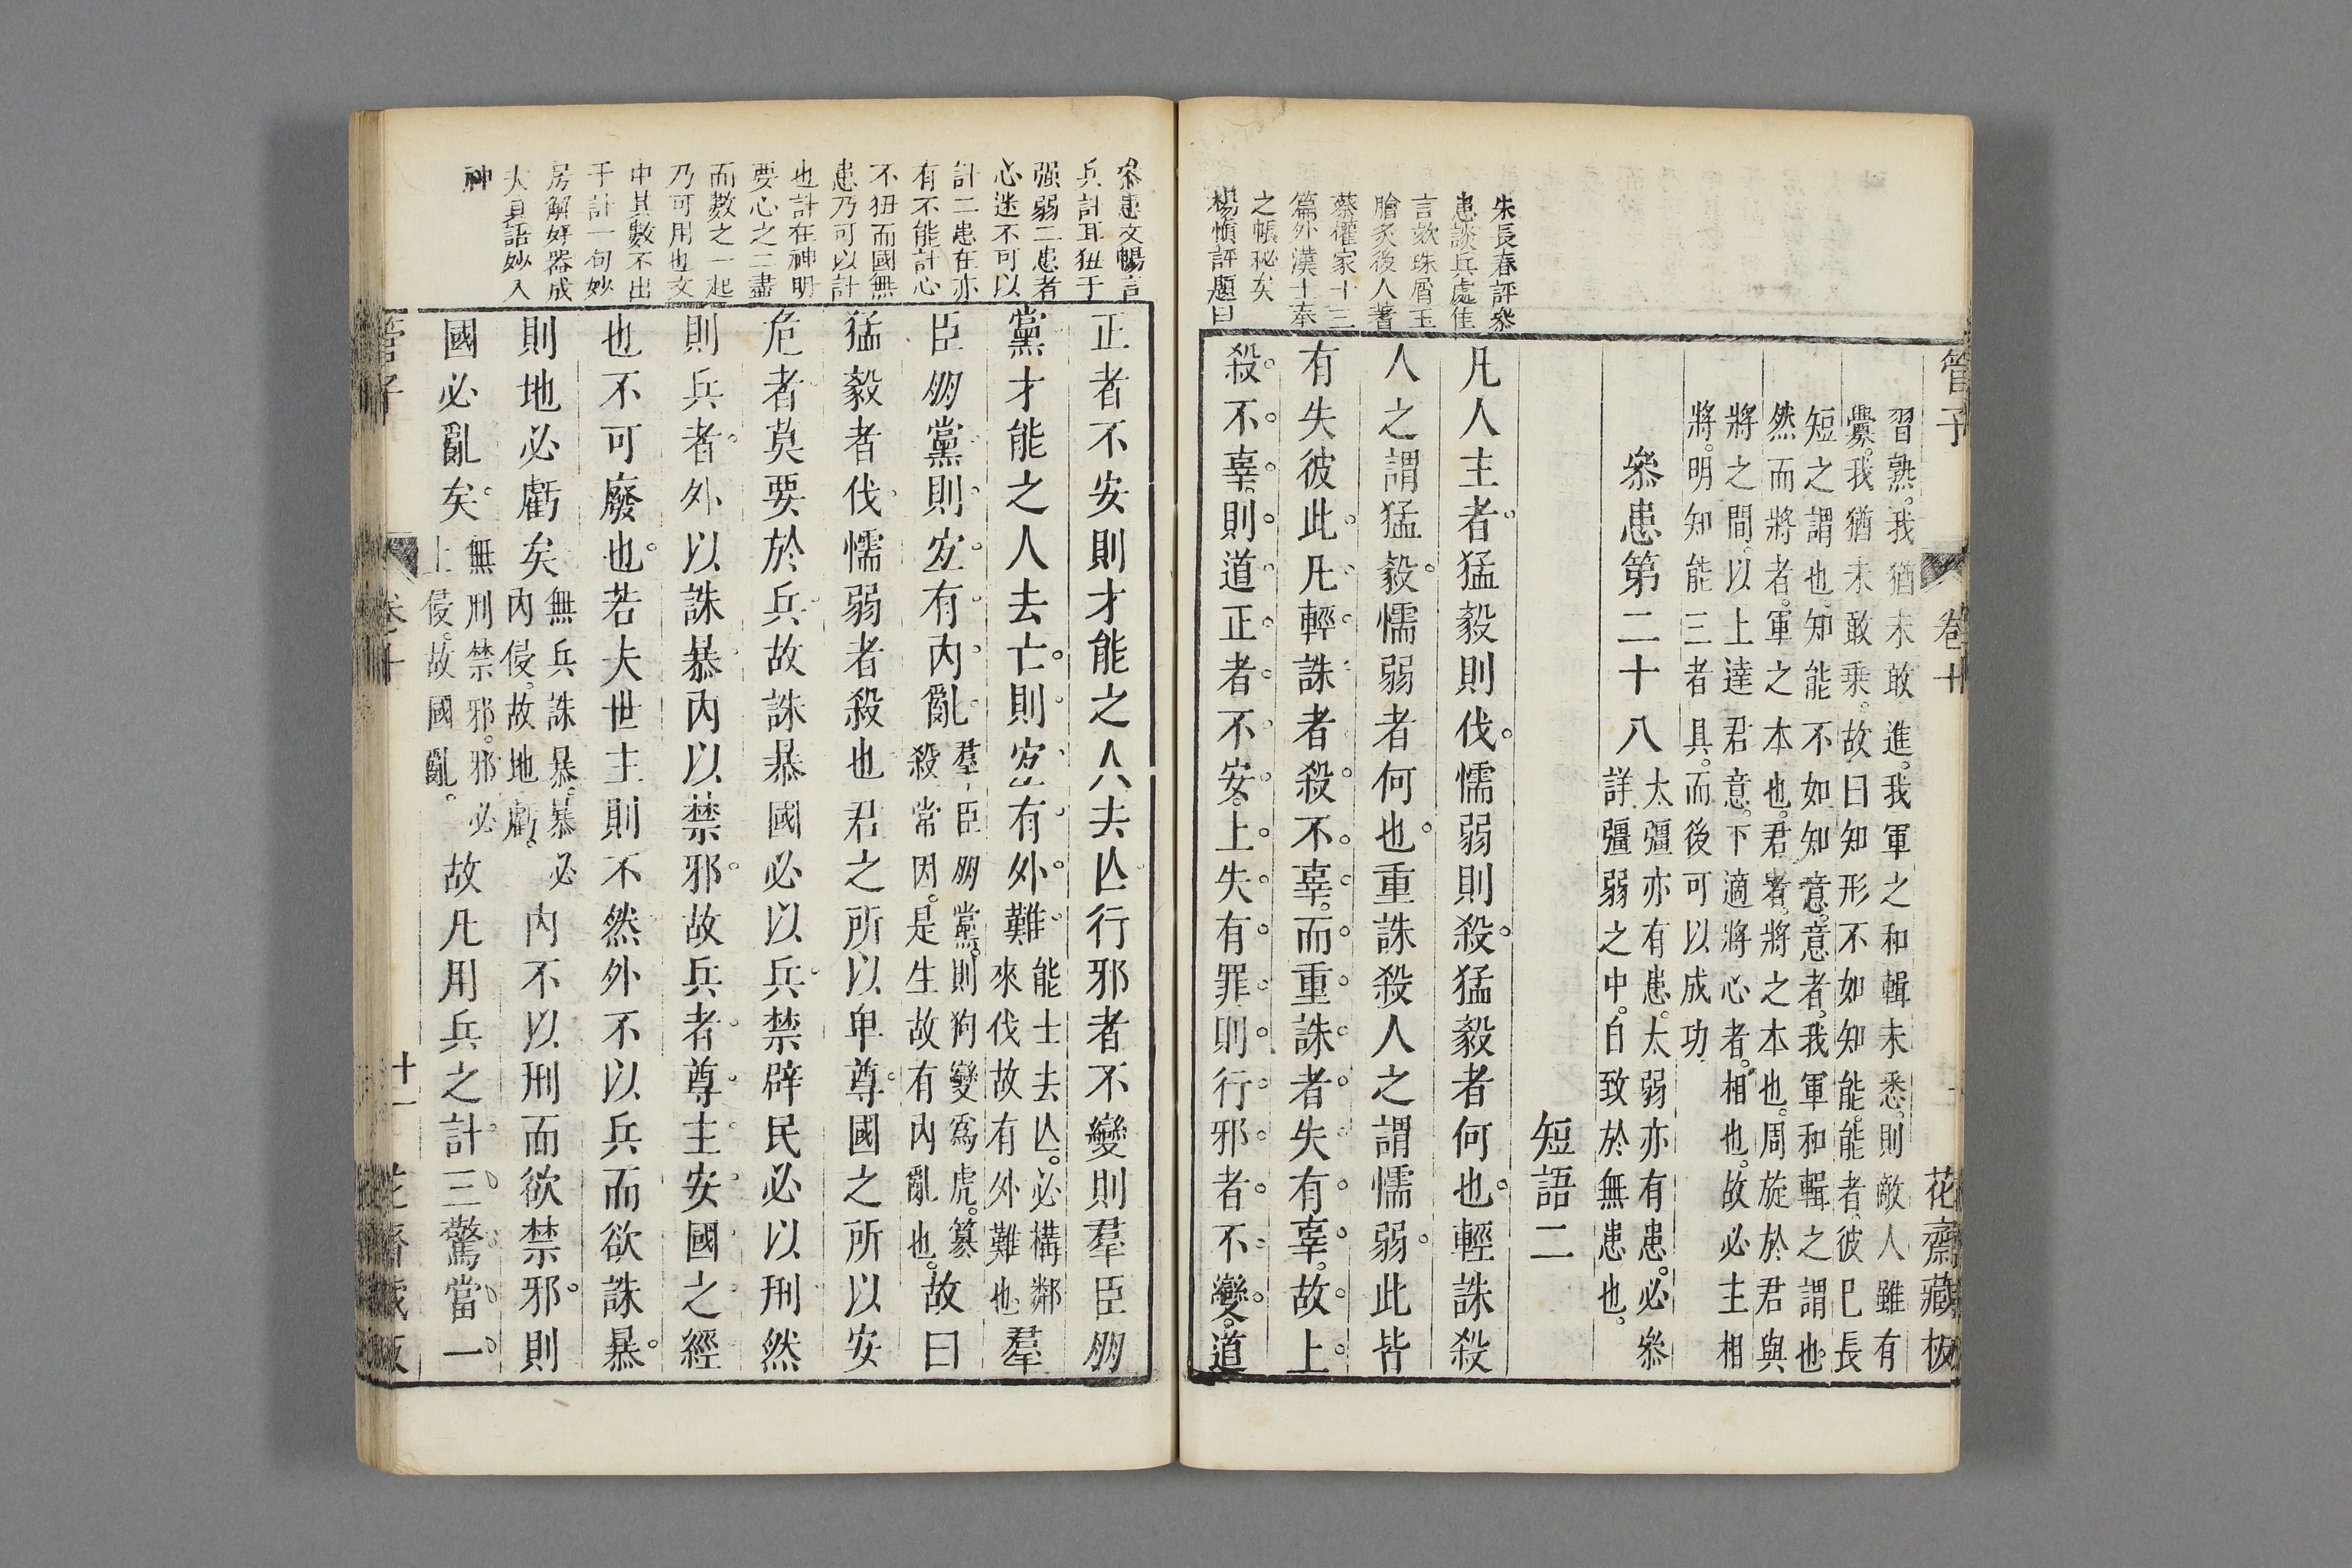 管子
卷十
花齋藏板
習熟。我猶未敢進。我軍之和輯未悉。則敵人雖有
釁。我猶未敢乗。故曰知形不如知能。能者。彼巳長
短之謂也。知能不如知意。意者。我軍和輯之謂也。
然而將者。軍之本也。君者。將之本也。周旋於君與
將之間。以上達君意。下適將心者。相也。故必主相
將。明知能三者具。而後可以成功
叅患第二十八
太彊亦有患。太弱亦有患。必叅
詳彊弱之中。自致於無患也。
短語二
凡人主者。猛毅則伐。懦弱則殺。猛毅者何也。輕誅殺
人之謂猛毅。懦弱者何也。重誅殺人之謂懦弱。此皆
有失彼此。凡輕誅者殺不辜。而重誅者失有辜。故上
殺不辜。則道正者不安。上失有罪。則行邪者不變。道
朱長春評叅
患談兵處佳
言欬珠屑玉
膾炙後人著
蔡權家十三
篇外漢士奉
之帳秘矣
楊愼評題曰
正者不安則才能之人去亾行邪者不變則羣臣朋
黨才能之人去亡。則宐有外難
能士去亾。必構鄰
來伐故有外難也
羣
臣朋黨則宐有内亂
羣臣朋黨。則狗變爲虎。簒
殺常因。是生故有内亂也。
故曰
猛毅者伐。懦弱者殺也君之所以卑尊。國之所以安
危者莫要於兵。故誅暴國必以兵。禁辟民必以刑然
則兵者。外以誅暴。内以禁邪。故兵者。尊主安國之經
也不可廢也。若夫世主則不然外不以兵而欲誅暴。
則地必虧矣
無兵誅暴。暴必
内侵。故地虧。
内不以刑而欲禁邪。則
國必亂矣。
無刑禁邪。邪必
上侵。故國亂。
故凡用兵之計。三驚當一。
叅患文暢言
兵計耳狃于
强弱二患者
心迷不可以
計二患在亦
有不能計心
不狃而國無
患乃可以計
也計在神明
要心之二盡
而數之一起
乃可用也文
中其數不出
于計一句妙
房解好器成
夫具語妙入
神
管子
卷十
十一
花齋藏板